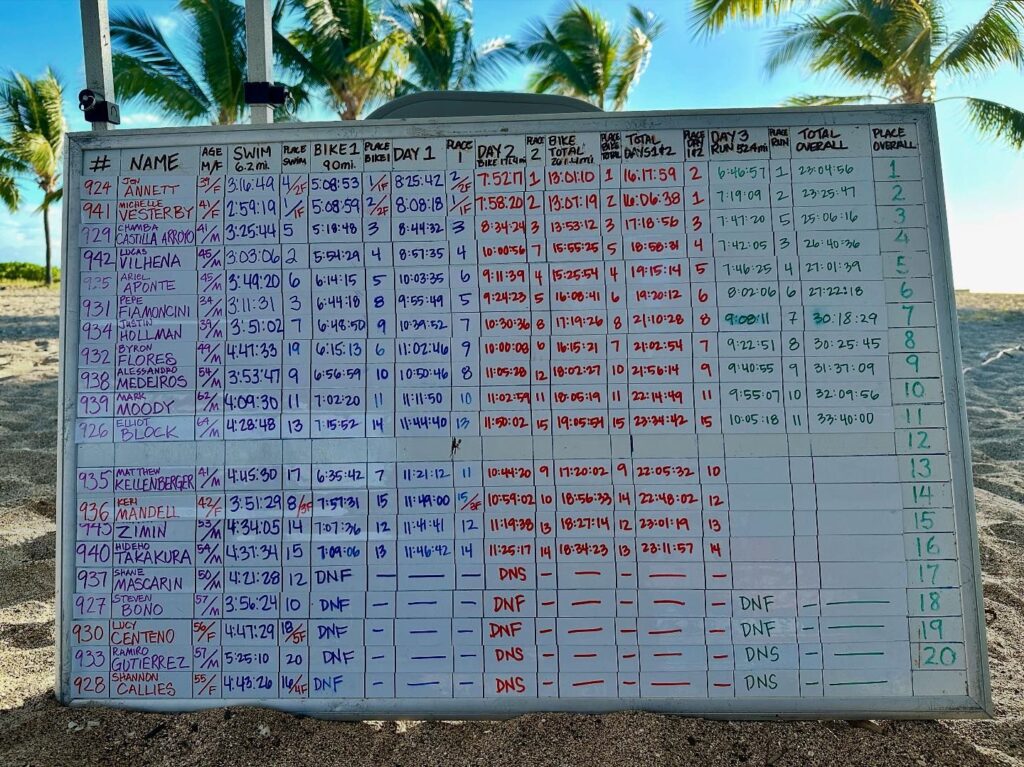 # NAME AGE M/F SWIM 6.2 mi. PLACE SWIM BIKE 1 90 mi. PLACE BIKE 1 DAY 1 PLACE 1 DAY 2 BIKE 171.4 mi PLACE 2 BIKE TOTAL 261.4 mi PLACE BIKE TOTAL TOTAL DAYS 1 & 2 PLACE DAY 1 & 2 DAY 3 RUN 52.4 mi. PLACE RUN TOTAL OVERALL PLACE OVERALL
924 JON ANNETT 3:16:49 4/2F 5:08:53 1/1F 8:25:42 2/2F 7:52:17 1 13:01:10 1 16:17:59 2 6:46:57 1 23:04:56 1
941 MICHELLE VESTERBY 41/F 2:59:19 1/1F 5:08:59 2/2F 8:08:18 1/1F 7:58:20 2 13:07:19 2 16:06:38 1 7:19:09 2 23:25:47 2
929 CHUMBA CASTILLA ARROYO 41/M 3:25:44 5 5:18:48 3 8:44:32 3 8:34:24 3 13:53:12 3 17:18:56 3 7:47:20 5 25:06:16 3
942 LUCAS VILHENA 46/M 3:03:06 2 5:54:29 4 8:57:35 4 10:00:56 7 15:55:25 5 18:58:31 4 7:42:05 3 26:40:36 4
925 ARIEL APONTE 45/M 3:49:20 6 6:14:15 5 10:03:35 6 9:11:39 4 15:25:54 4 19:15:14 5 7:46:25 4 27:01:39 5
931 PEPE FIAMONCINI 34/M 3:11:31 3 6:44:18 8 9:55:49 5 9:24:23 5 16:08:41 6 19:20:12 6 8:02:06 6 27:22:18 6
934 JUSTIN HOLLMAN 39/M 3:51:02 7 6:48:50 9 10:39:52 7 10:30:36 8 17:19:26 8 21:10:28 8 9:08:11 7 30:18:29 7
932 BYRON FLORES 49/M 4:47:33 19 6:15:13 6 11:02:46 9 10:00:08 6 16:15:21 7 21:02:54 7 9:22:51 8 30:25:45 8
938 ALESSANDRO MEDEIROS 54/M 3:53:47 9 6:56:59 10 10:50:46 8 11:05:28 12 18:02:27 10 21:56:14 9 9:40:55 9 31:37:09 9
939 MARK MOODY 62/M 4:09:30 11 7:02:20 11 11:11:50 10 11:02:59 11 18:05:19 11 22:14:49 11 9:55:07 10 32:09:56 10
926 ELLIOT BLOCK 64/M 4:28:48 13 7:15:52 14 11:44:40 13 11:50:02 15 19:05:54 15 23:34:42 15 10:05:18 11 33:40:00 11
12
935 MATTHEW KELLENBERGER 41/M 4:45:30 17 6:35:42 7 11:21:12 11 10:44:20 9 17:20:02 9 22:05:32 10 13
936 KERI MANDELL 42/F 3:51:29 8/3F 7:57:31 15 11:49:00 15/3F 10:59:02 10 18:56:33 14 22:48:02 12 14
ZIMIN 53/M 4:34:05 14 7:07:36 12 11:41:41 12 11:19:38 13 18:27:14 12 23:01:19 13 15
940 HIDEHO TAKAKURA 54/M 4:37:34 15 7:09:06 13 11:46:42 14 11:25:17 14 18:34:23 13 23:11:57 14 16
937 SHANE MASCARIN 50/M 4:21:28 12 DNF — — — DNS — — — — — 17
927 STEVEN BONO 57/M 3:56:24 10 DNF — — — DNF — — — — — DNF — — 18
930 LUCY CENTENO 56/F 4:47:29 18/5F DNF — — — DNF — — — — — DNF — — 19
933 RAMIRO GUTIERREZ 57/M 5:25:10 20 DNF — — — DNS — — — — — DNS — — 20
928 SHANNON CALLIES 55/F 4:43:26 16/4F DNF — — — DNS — — — — — DNS — —